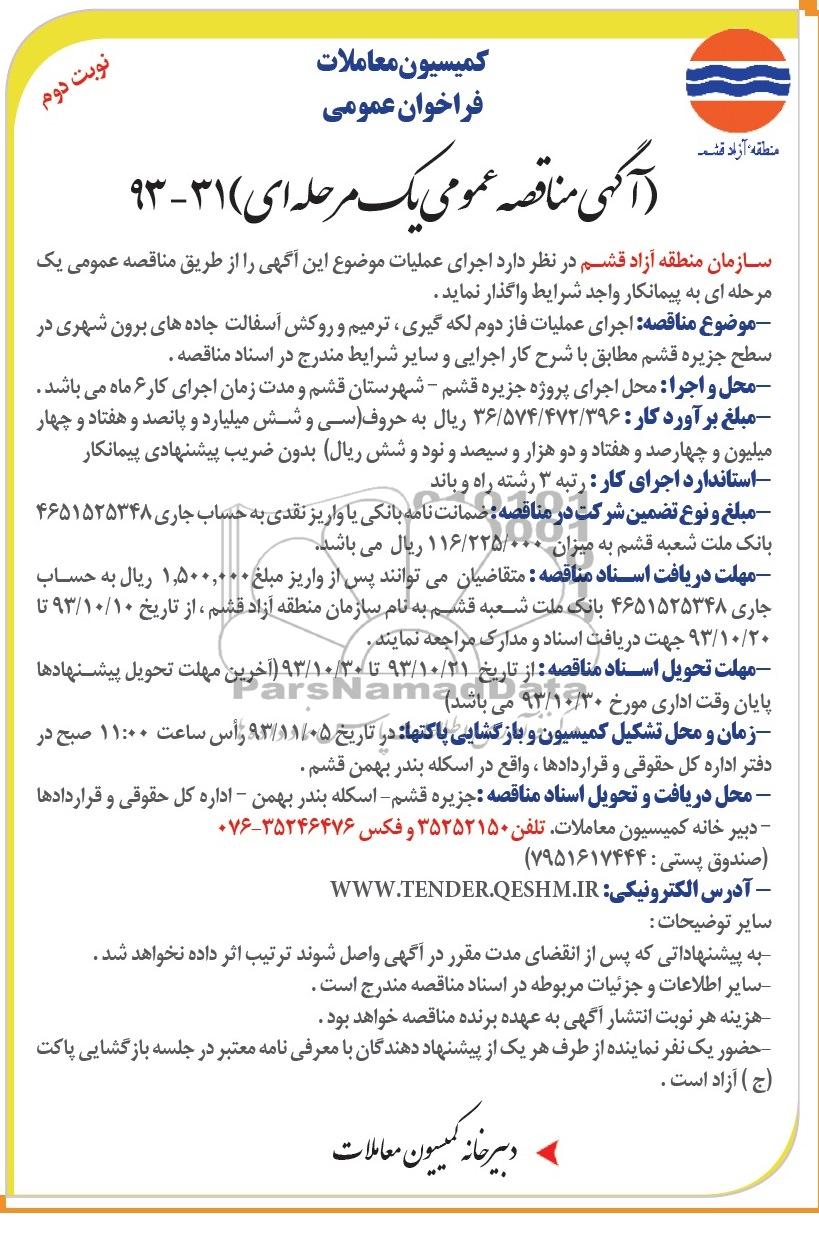 نوبت دوم
کمیسیون معاملات
فراخوان عمومی
منطقه آزاد قشم
(آگهی مناقصه عمومی یک مرحله ای) ۳۱ - ۹۳
سازمان منطقه آزاد قشم در نظر دارد اجرای عملیات موضوع این آگهی را از طریق مناقصه عمومی یک
مرحله ای به پیمانکار واجد شرایط واگذار نماید .
-موضوع مناقصه: اجرای عملیات فاز دوم لکه گیری ، ترمیم و روکش آسفالت جاده های برون شهری در
سطح جزیره قشم مطابق با شرح کار اجرایی و سایر شرایط مندرج در اسناد مناقصه .
-محل و اجرا : محل اجرای پروژه جزیره قشم - شهرستان قشم و مدت زمان اجرای کار ۶ ماه می باشد .
-مبلغ برآورد کار : ۳۶/۵۷۴/۴۷۲/۳۹۶ ریال به حروف(سی و شش میلیارد و پانصد و هفتاد و چهار
میلیون و چهارصد و هفتاد و دو هزار و سیصد و نود و شش ریال) بدون ضریب پیشنهادی پیمانکار
-استاندارد اجرای کار : رتبه ۳ رشته راه و باند
-مبلغ و نوع تضمین شرکت در مناقصه: ضمانت نامه بانکی یا واریز نقدی به حساب جاری ۴۶۵۱۵۲۵۳۴۸
بانک ملت شعبه قشم به میزان ۱۱۶/۲۲۵/۰۰۰ ریال می باشد.
-مهلت دریافت اسناد مناقصه : متقاضیان می توانند پس از واریز مبلغ ۱,۵۰۰,۰۰۰ ریال به حساب
جاری ۴۶۵۱۵۲۵۳۴۸ بانک ملت شعبه قشم به نام سازمان منطقه آزاد قشم ، از تاریخ ۹۳/۱۰/۱۰ تا
۹۳/۱۰/۲۰ جهت دریافت اسناد و مدارک مراجعه نمایند .
-مهلت تحویل اسناد مناقصه : از تاریخ ۹۳/۱۰/۲۱ تا ۹۳/۱۰/۳۰ (آخرین مهلت تحویل پیشنهادها
پایان وقت اداری مورخ ۹۳/۱۰/۳۰ می باشد)
ParsNamadData
-زمان و محل تشکیل کمیسیون و بازگشایی پاکتها: در تاریخ ۹۳/۱۱/۰۵ رأس ساعت ۱۱:۰۰ صبح در
دفتر اداره کل حقوقی و قراردادها ، واقع در اسکله بندر بهمن قشم .
- محل دریافت و تحویل اسناد مناقصه :جزیره قشم- اسکله بندر بهمن - اداره کل حقوقی و قراردادها
- دبیر خانه کمیسیون معاملات. تلفن ۳۵۲۵۲۱۵۰ و فکس ۳۵۲۴۶۴۷۶-۰۷۶
(صندوق پستی : ۷۹۵۱۶۱۷۴۴۴)
- آدرس الکترونیکی: WWW.TENDER.QESHM.IR
سایر توضیحات :
-به پیشنهاداتی که پس از انقضای مدت مقرر در آگهی واصل شوند ترتیب اثر داده نخواهد شد .
-سایر اطلاعات و جزئیات مربوطه در اسناد مناقصه مندرج است .
-هزینه هر نوبت انتشار آگهی به عهده برنده مناقصه خواهد بود .
-حضور یک نفر نماینده از طرف هر یک از پیشنهاد دهندگان با معرفی نامه معتبر در جلسه بازگشایی پاکت
(ج ) آزاد است .
دبیرخانه کمیسیون معاملات